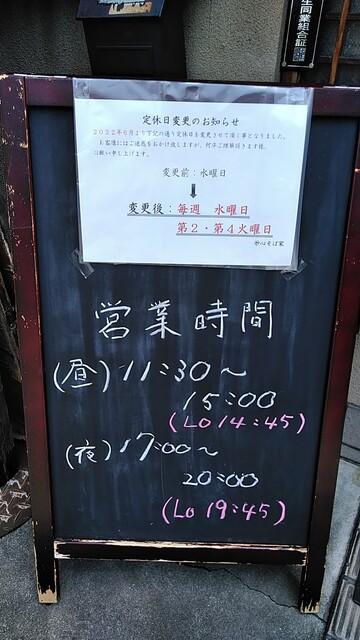 生同業組合証
定休日変更のお知らせ
2022年6月より下記の通り定休日を変更させて頂く事となりました。
お客様にはご迷惑をおかけ致しますが、何卒ご理解頂きます様、
お願い申し上げます。
変更前：水曜日
⬇
変更後：毎週 水曜日
第2・第4火曜日
妙心そば家
営業時間
(昼) 11:30～
15:00
(Lo 14:45)
(夜) 17:00～
20:00
(Lo 19:45)